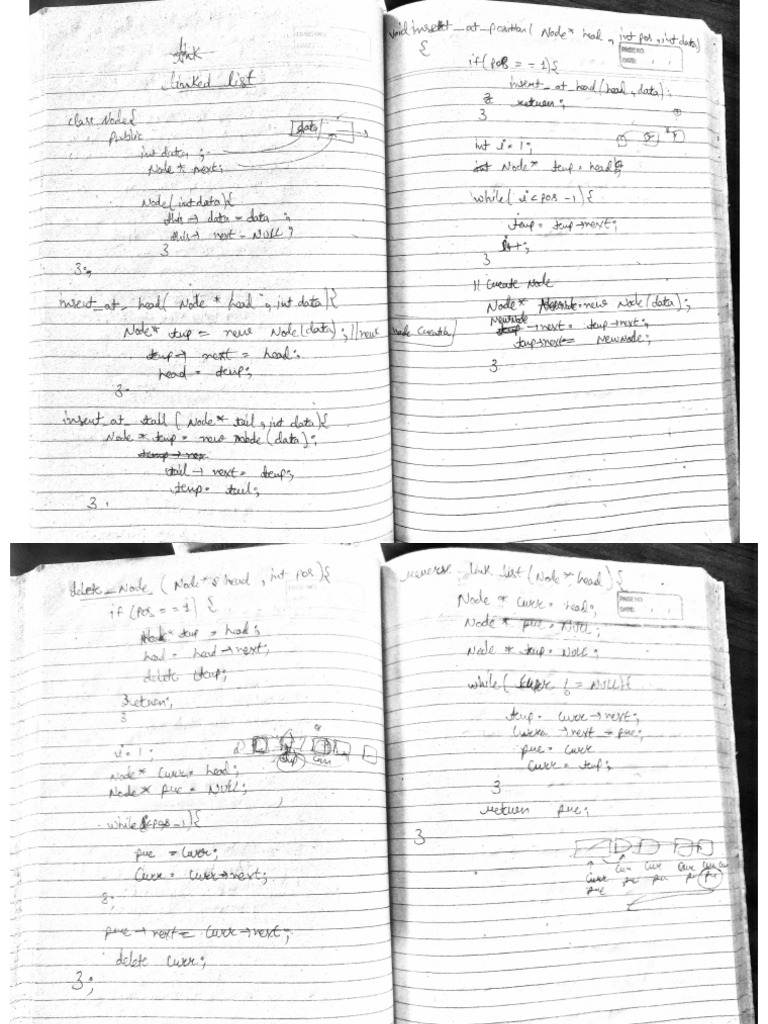 Linked list
class Node{
public
int data ;
Node * next;
data
Node(int data){
this → data = data ;
this → next = NULL ;
}
};
insert_at_head( Node * head , int data){
Node* temp = new Node(data); // new node creation
temp → next = head;
head = temp;
}
insert_at_ (Node* tail, int data){
Node * temp = new Node(data);
tail → next = temp;
temp = tail;
}
void insert_at_position( Node* head , int pos, int data)
{
PAGE NO.
DATE:
if(pos = = 1){
insert_at_head(head, data);
return;
}
int i = 1;
Node* temp = head;
while( i < pos -1){
temp = temp → next;
i++;
}
// Create Node
Node* NewNode = new Node(data);
NewNode → next = temp → next;
temp → next = NewNode;
}
delete_Node (Node* & head , int pos){
if (pos = = 1) {
Node* temp = head;
head = head → next;
delete temp;
return;
}
i = 1;
Node* curr = head;
Node* pre = NULL;
while( < pos -1){
pre = curr;
curr = curr → next;
};
pre → next = curr → next;
delete curr;
};
reverse link list (Node* head) {
PAGE NO.
DATE:
Node * curr = head;
Node * pre = NULL;
Node * temp = NULL;
while( curr != NULL){
temp = curr → next;
curr → next = pre;
pre = curr
curr = temp;
}
return pre;
}
curr curr curr curr
pre pre pre pre